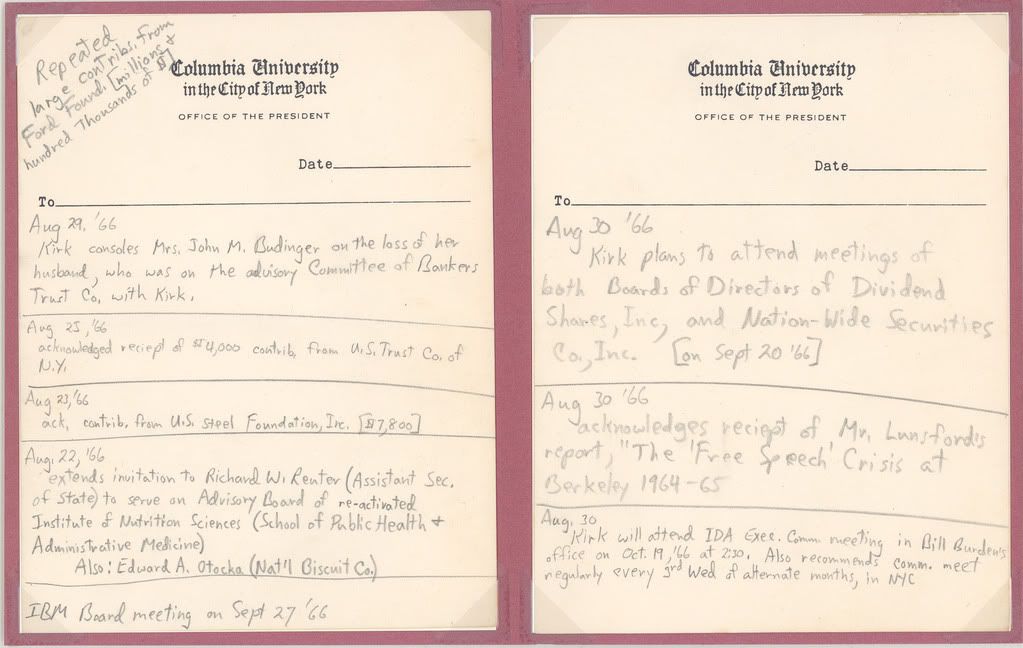 Repeated
large contribs. from
Ford Found. [millions &
hundred thousands of $]
Columbia University
in the City of New York
OFFICE OF THE PRESIDENT
Date
To
Aug 29, '66
Kirk consoles Mrs. John M. Budinger on the loss of her
husband, who was on the advisory Committee of Bankers
Trust Co. with Kirk.
Aug 25, '66
acknowledged reciept of $4,000 contrib. from U.S. Trust Co. of
N.Y.
Aug 23, '66
ack. contrib. from U.S. steel Foundation, Inc. [$7,800]
Aug. 22, '66
extends invitation to Richard W. Reuter (Assistant Sec.
of State) to serve on Advisory Board of re-activated
Institute of Nutrition Sciences (School of Public Health &
Administrative Medicine)
Also: Edward A. Otocka (Nat'l Biscuit Co.)
IBM Board meeting on Sept 27 '66
Columbia University
in the City of New York
OFFICE OF THE PRESIDENT
Date
To
Aug 30 '66
Kirk plans to attend meetings of
both Boards of Directors of Dividend
Shares, Inc, and Nation-Wide Securities
Co., Inc. [on Sept 20 '66]
Aug 30 '66
acknowledges reciept of Mr. Lunsford's
report, "The 'Free Speech' Crisis at
Berkeley 1964-65
Aug. 30
Kirk will attend IDA Exec. Comm. meeting in Bill Burden's
office on Oct. 19, '66 at 2:30. Also recommends comm. meet
regularly every 3rd Wed of alternate months, in NYC